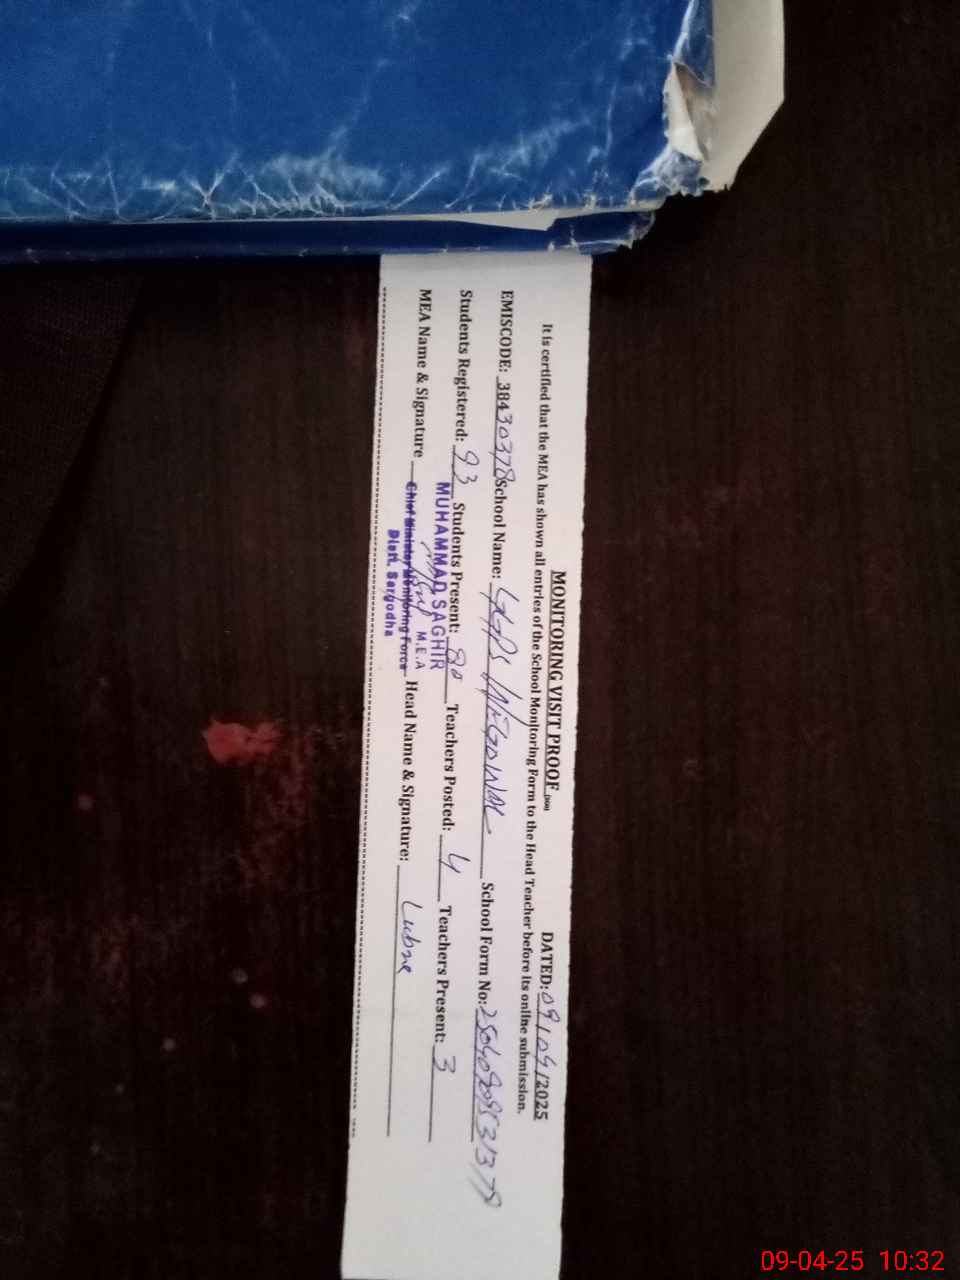 MONITORING VISIT PROOF DATED: 09/04/2025
It is certified that the MEA has shown all entries of the School Monitoring Form to the Head Teacher before its online submission.
EMISCODE: 38430378 School Name: GGPS School Form No:
Students Registered: 93 Students Present: 80 Teachers Posted: 4 Teachers Present: 3
MEA Name & Signature Head Name & Signature: Lubne
MUHAMMAD SAGHIR
M.E.A
Chief Minister Monitoring Force
Distt. Sargodha
09-04-25 10:32